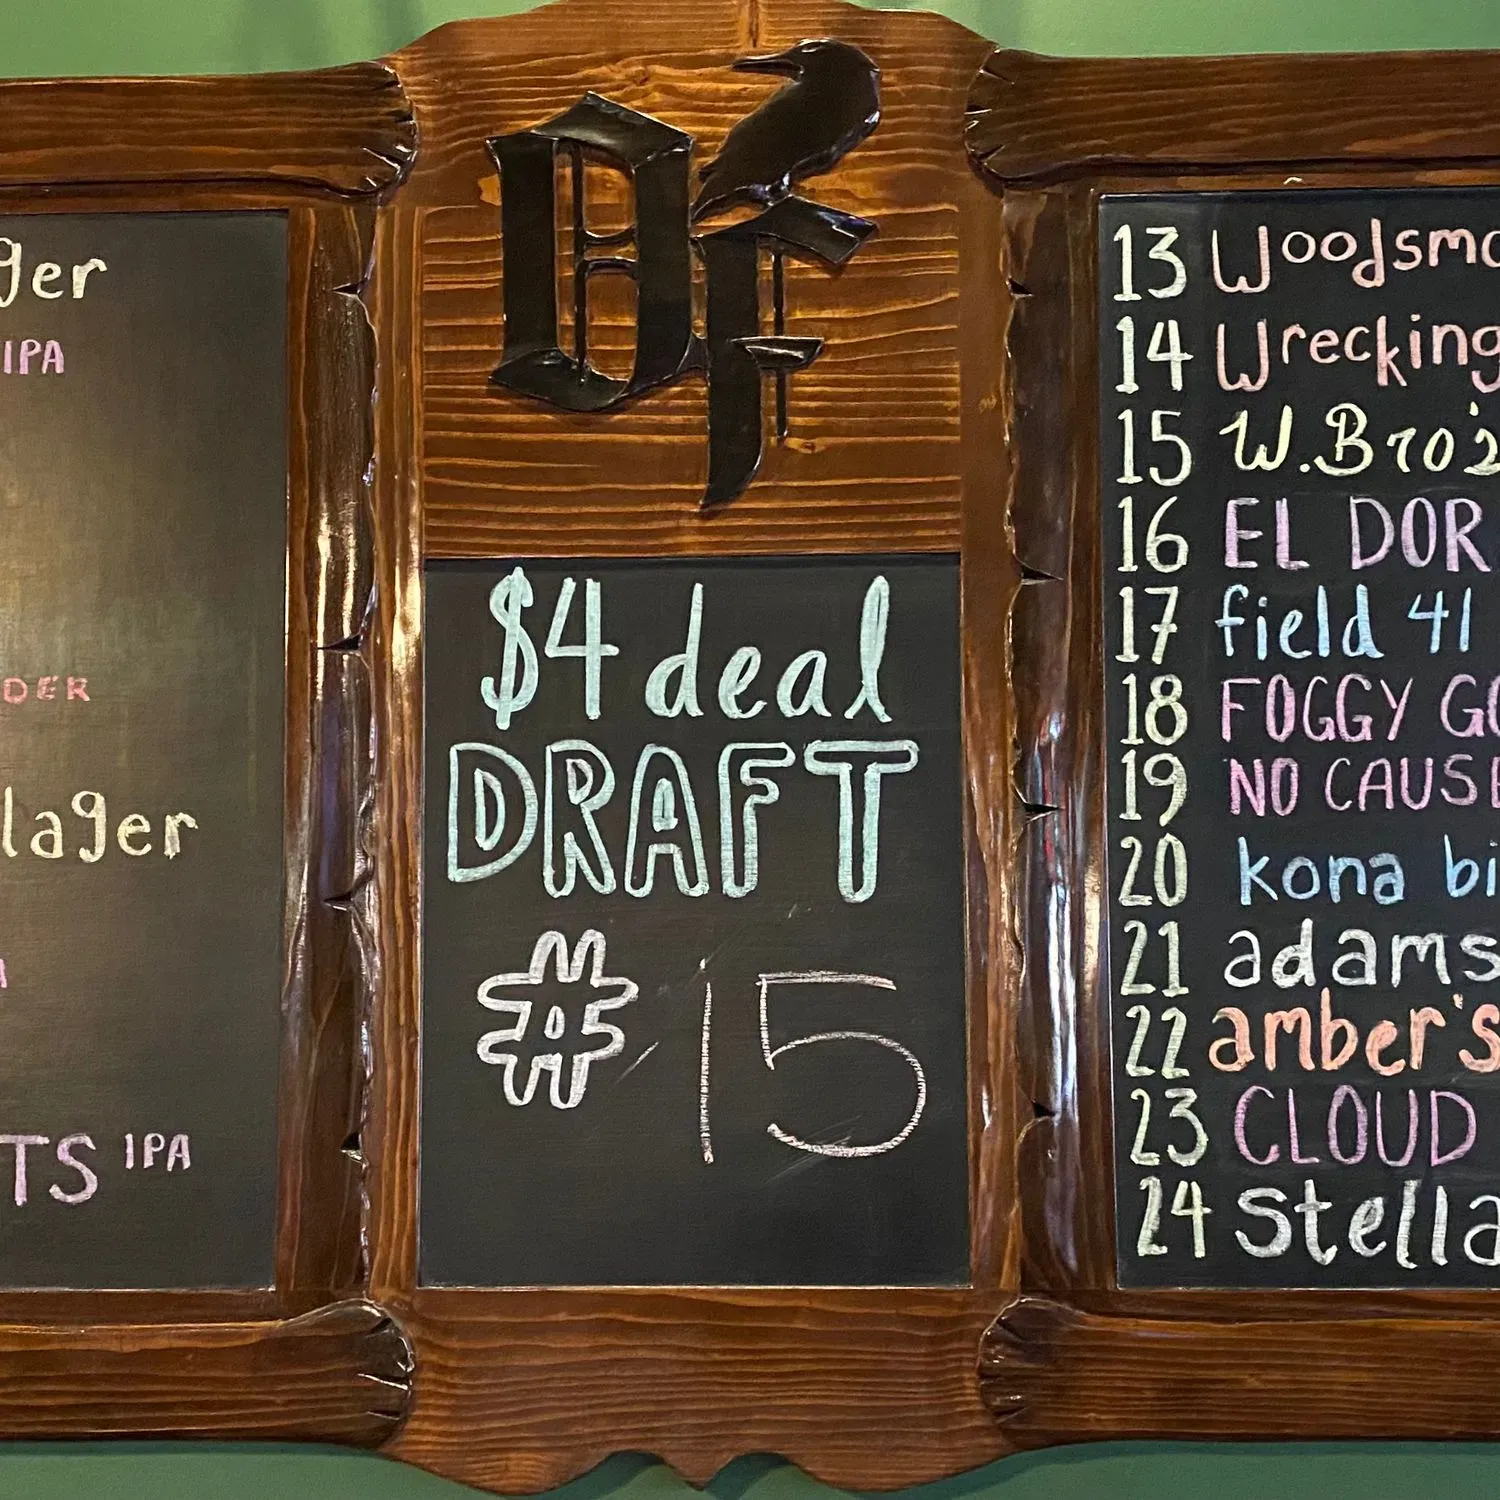 ger
IPA
DER
lager
A
TS IPA
DF
$4 deal
DRAFT
# 15
13 Woodsmo
14 Wrecking
15 W.Bro's
16 EL DOR
17 field 41
18 FOGGY GO
19 NO CAUSE
20 kona bi
21 adams
22 amber's
23 CLOUD
24 Stella